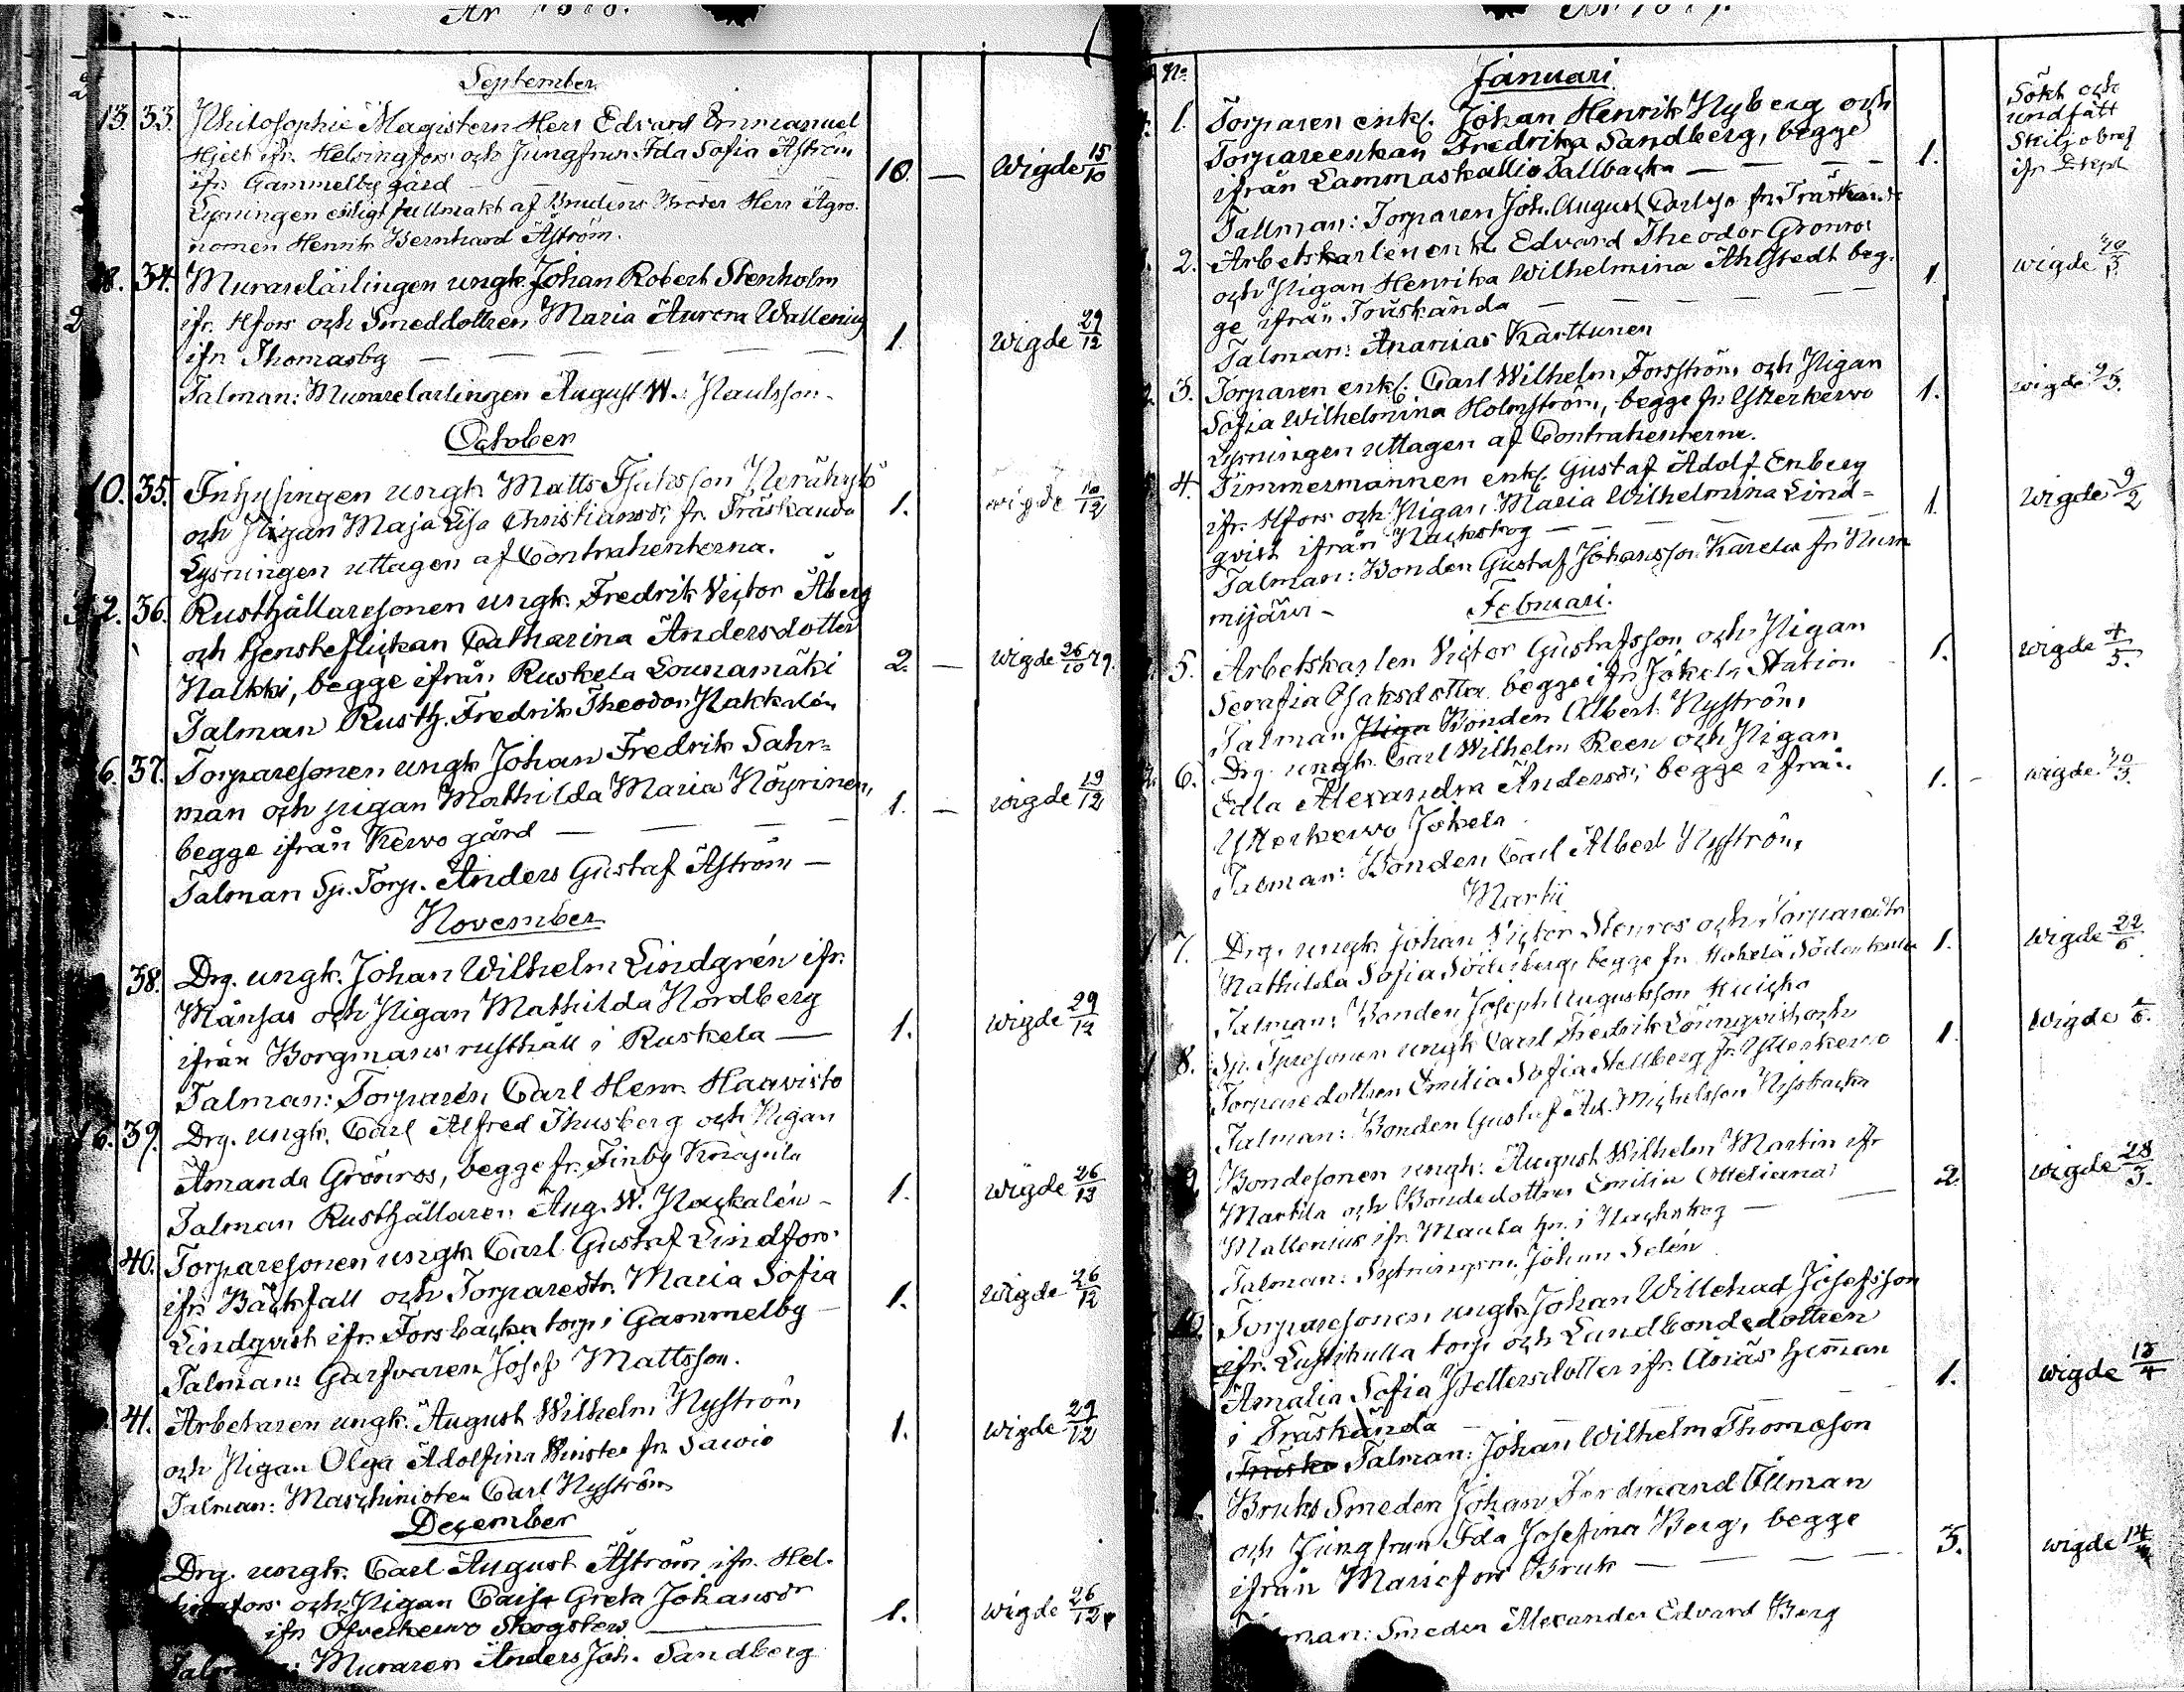 September
13. 33. Philosophie Magistern Herr Edvard Emmanuel
Hjelt ifr. Helsingfors och Jungfrun Ida Sofia Åström
ifr. Gammelby gård — — — — 10. — Wigde 15/10
Lysningen enligt fullmakt af Brudens Broder Herr Agro-
nomen Henrik Bernhard Åström.
34. Murarelärlingen ungk. Johan Robert Stenholm
ifr. Hfors och Smeddottren Maria Aurora Wallenius
ifrn Thomasby — — — — — — 1. wigde 29/12
Talman: Murarelärlingen August W. Paulsson.
October
10. 35. Inhysingen ungk. Matts
och Pigan Maja Lisa Christiansdr fr. Träskända 1. wigde
Lysningen uttagen af Contrahenterna.
36. Rusthållaresonen ungk. Fredrik Victor Åberg
och tjensteflickan Catharina Andersdotter
begge ifrån Ruskela Lounamäki 2. — wigde 26/10 79.
Talman Rusth. Fredrik Theodor Nakkalén
37. Torparesonen ungk. Johan Fredrik Sahr-
man och pigan Mathilda Maria Köyrinen,
begge ifrån Kervo gård — — — — 1. — wigde 19/12
Talman Sp. Torp. Anders Gustaf Åström —
November
38. Drg. ungk. Johan Wilhelm Lindgrén ifr.
Månsas och Pigan Mathilda Nordberg
ifrån Borgmans rusthåll i Ruskela — 1. wigde 29/12
Talman: Torparen Carl Henr. Haavisto
39. Drg. ungk. Carl Alfred Thusberg och Pigan
Amanda Grönros, begge fr. Finby
Talman Rusthållaren Aug. W. Nackalén — 1. wigde
40. Torparesonen ungk. Carl Gustaf Lindfors
ifr. Bäckfall och Torparedtr. Maria Sofia
Lindqvist ifr. Forsbacka torp i Gammelby — 1. wigde 26/12
Talman: Garfvaren Josef Mattsson.
41. Arbetaren ungk. August Wilhelm Nyström
och Pigan Olga Adolfina fr. Savio 1. wigde 29/12
Talman: Maschinisten Carl Nyström
December
Drg. ungk. Carl August Åström ifr. Hel-
fors och Pigan Caisa Greta Johansdr
ifr. Öfverkervo Skogster — 1. wigde 26/12
Muraren Anders Joh. Sandberg
No.
Januari
1. Torparen enkl. Johan Henrik Nyberg och
Torpareenkan Fredrika Sandberg, begge
ifrån Lammaskallio Tallbacka — — — 1. Sökt och undfått Skiljobref
Tallman: Torparen Joh. August Carlsson fr. Träskända
2. Arbetskarlen enkl. Edvard Theodor Grönros
och Pigan Henrika Wilhelmina Ahlstedt beg-
ge ifrån Träskända — — — — — 1. wigde
Talman: Ananias Karttunen
3. Torparen enkl. Carl Wilhelm Forsström och Pigan
Sofia Wilhelmina Holmström, begge fr. Ytterkervo 1. wigde
Lysningen uttagen af Contrahenterne.
4. Timmermannen enkl. Gustaf Adolf Enberg
ifr. Hfors och Pigan Maria Wilhelmina Lind-
qvist ifrån Nackskog — — — — — 1. wigde 9/2
Talman: Bonden Gustaf Johansson Karela fr. Num
mijärvi —
Februari.
5. Arbetskarlen Victor Gustafsson och Pigan
Serafia Isaksdotter begge ifr. Jokela Station 1. wigde 4/5.
Talman Bonden Albert Nyström
6. Drg. ungk. Carl Wilhelm Reen och Pigan
Edla Alexandra Andersdr, begge ifrån 1. — wigde
Ytterkervo Jokela
Talman: Bonden Carl Albert Nyström
Martii
7. Drg. ungk. Johan Victor Stenros och Torparedtr
Mathilda Sofia Söderberg, begge fr. 1. wigde 22/6
Talman: Bonden Joseph Augustsson
8. ungk. Carl Fredrik Lönnqvist och
Torparedottren Emilia Sofia Stellberg fr. Ytterkervo 1. wigde
Talman: Bonden Gustaf Ad. Michelsson
Bondesonen ungk. August Wilhelm Martin ifr
Martila och Bondedottren Emilia Otteliana
Mallenius ifr. Maula hn. i Nackskog — 2. wigde 28/3.
Talman: Johan Selén
Torparesonen ungk. Johan Willehad Josefsson
ifr. torp och Landbondedottren
Amalia Sofia Pettersdotter ifr. heman
i Träskända — — — 1. wigde
Träsk Talman: Johan Wilhelm Thomasson
Bruks Smeden Johan Ferdinand Öllman
och Jungfrun Ida Josefina Berg, begge
ifrån Mariefors Bruk — — — — 3. wigde
Smeden Alexander Edvard Berg